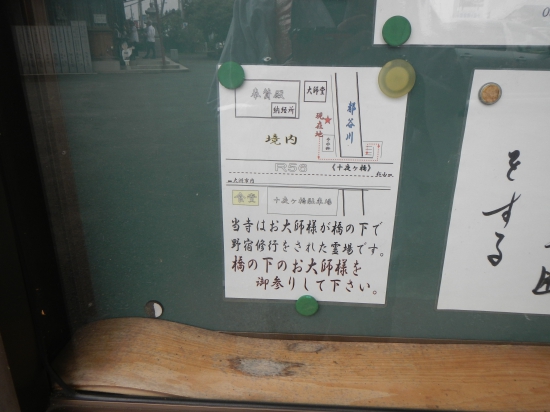 本誓殿
納経所
大師堂
都谷川
現在地
境内
R56
《十夜ヶ橋》
←大洲市内
食堂
十夜ヶ橋駐車場
当寺はお大師様が橋の下で
野宿修行をされた霊場です。
橋の下のお大師様を
御参りして下さい。
をする